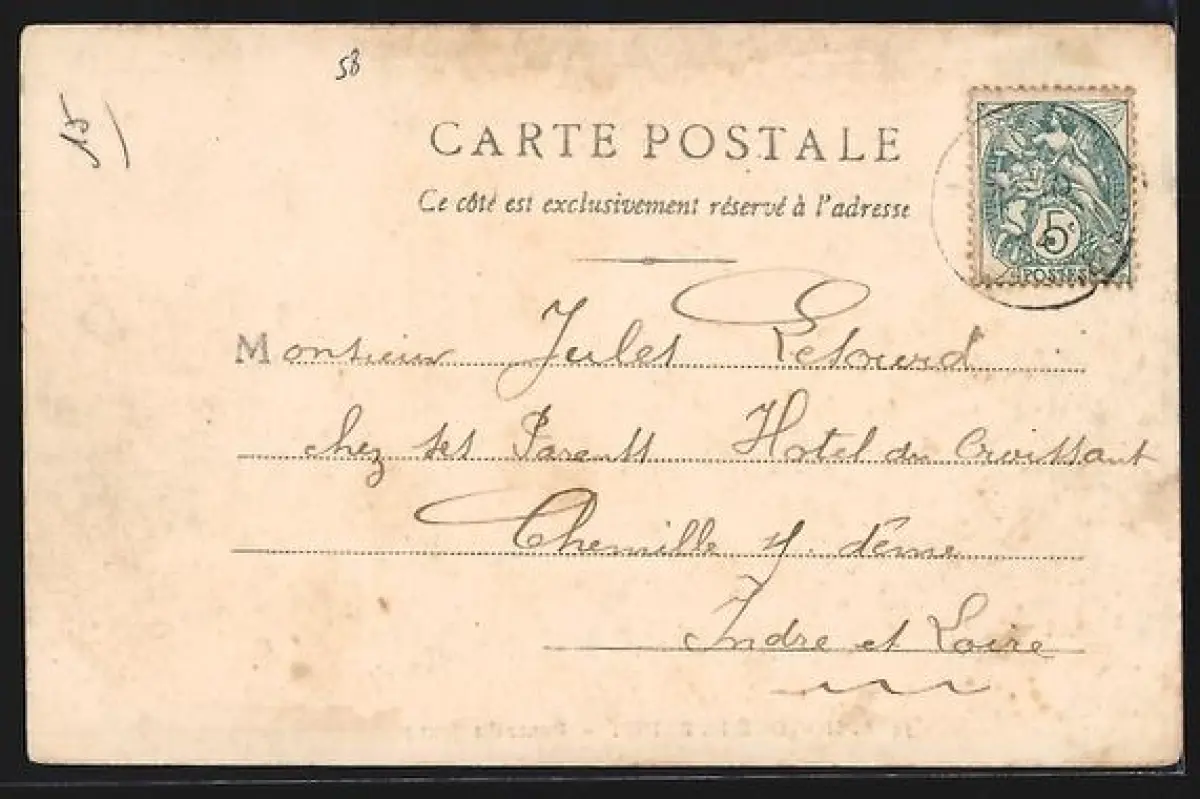 58
15
CARTE POSTALE
Ce côté est exclusivement réservé à l'adresse
5c
POSTES
Monsieur Jules Letourd
chez ses Parents Hotel du Croissant
Chemille s/. dême
Indre et Loire